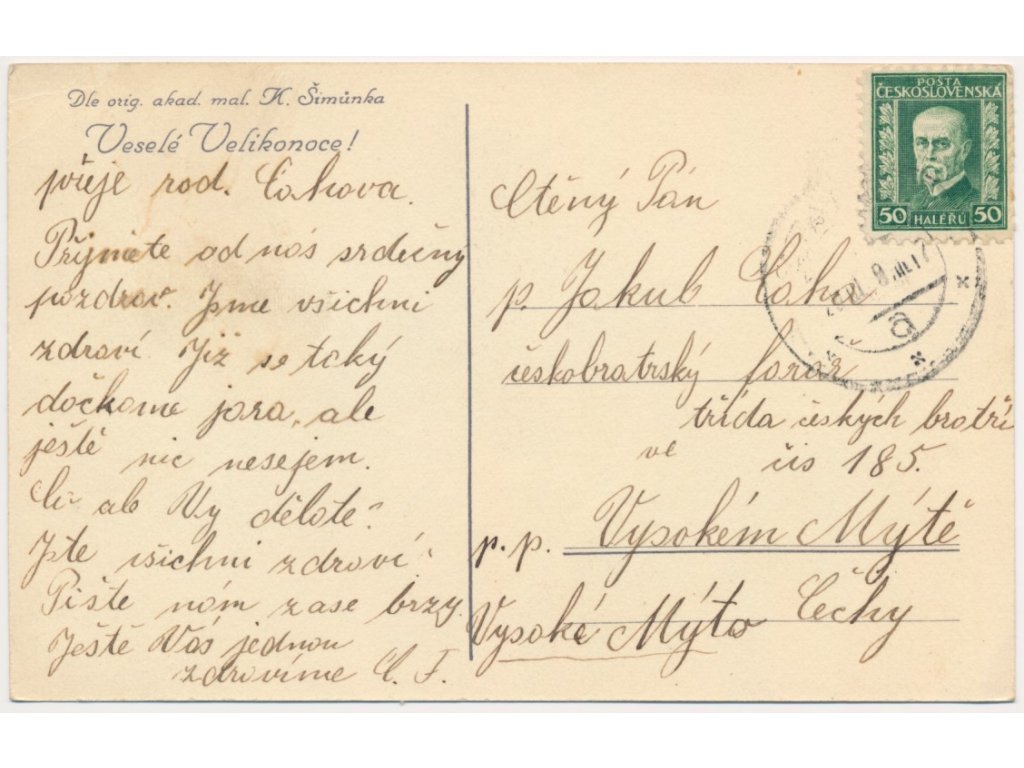 Dle orig. akad. mal. K. Šimůnka
Veselé Velikonoce!
přeje rod. Cahova.
Přijměte od nás srdečný
pozdrav. Jsme všichni
zdraví. Již se taký
dočkáme jara, ale
ještě nic nesejem.
Co as Vy děláte?
Jste všichni zdraví?
Pište nám zase brzy.
Ještě Vás jednou
zdravíme C. F.
POŠTA
ČESKOSLOVENSKÁ
50 HALÉŘŮ 50
Ctěný Pán
p. Jakub Caha
českobratrský farář
třída českých bratří
čís 185.
ve
Vysokém Mýtě
p. p.
Čechy
Vysoké Mýto
a